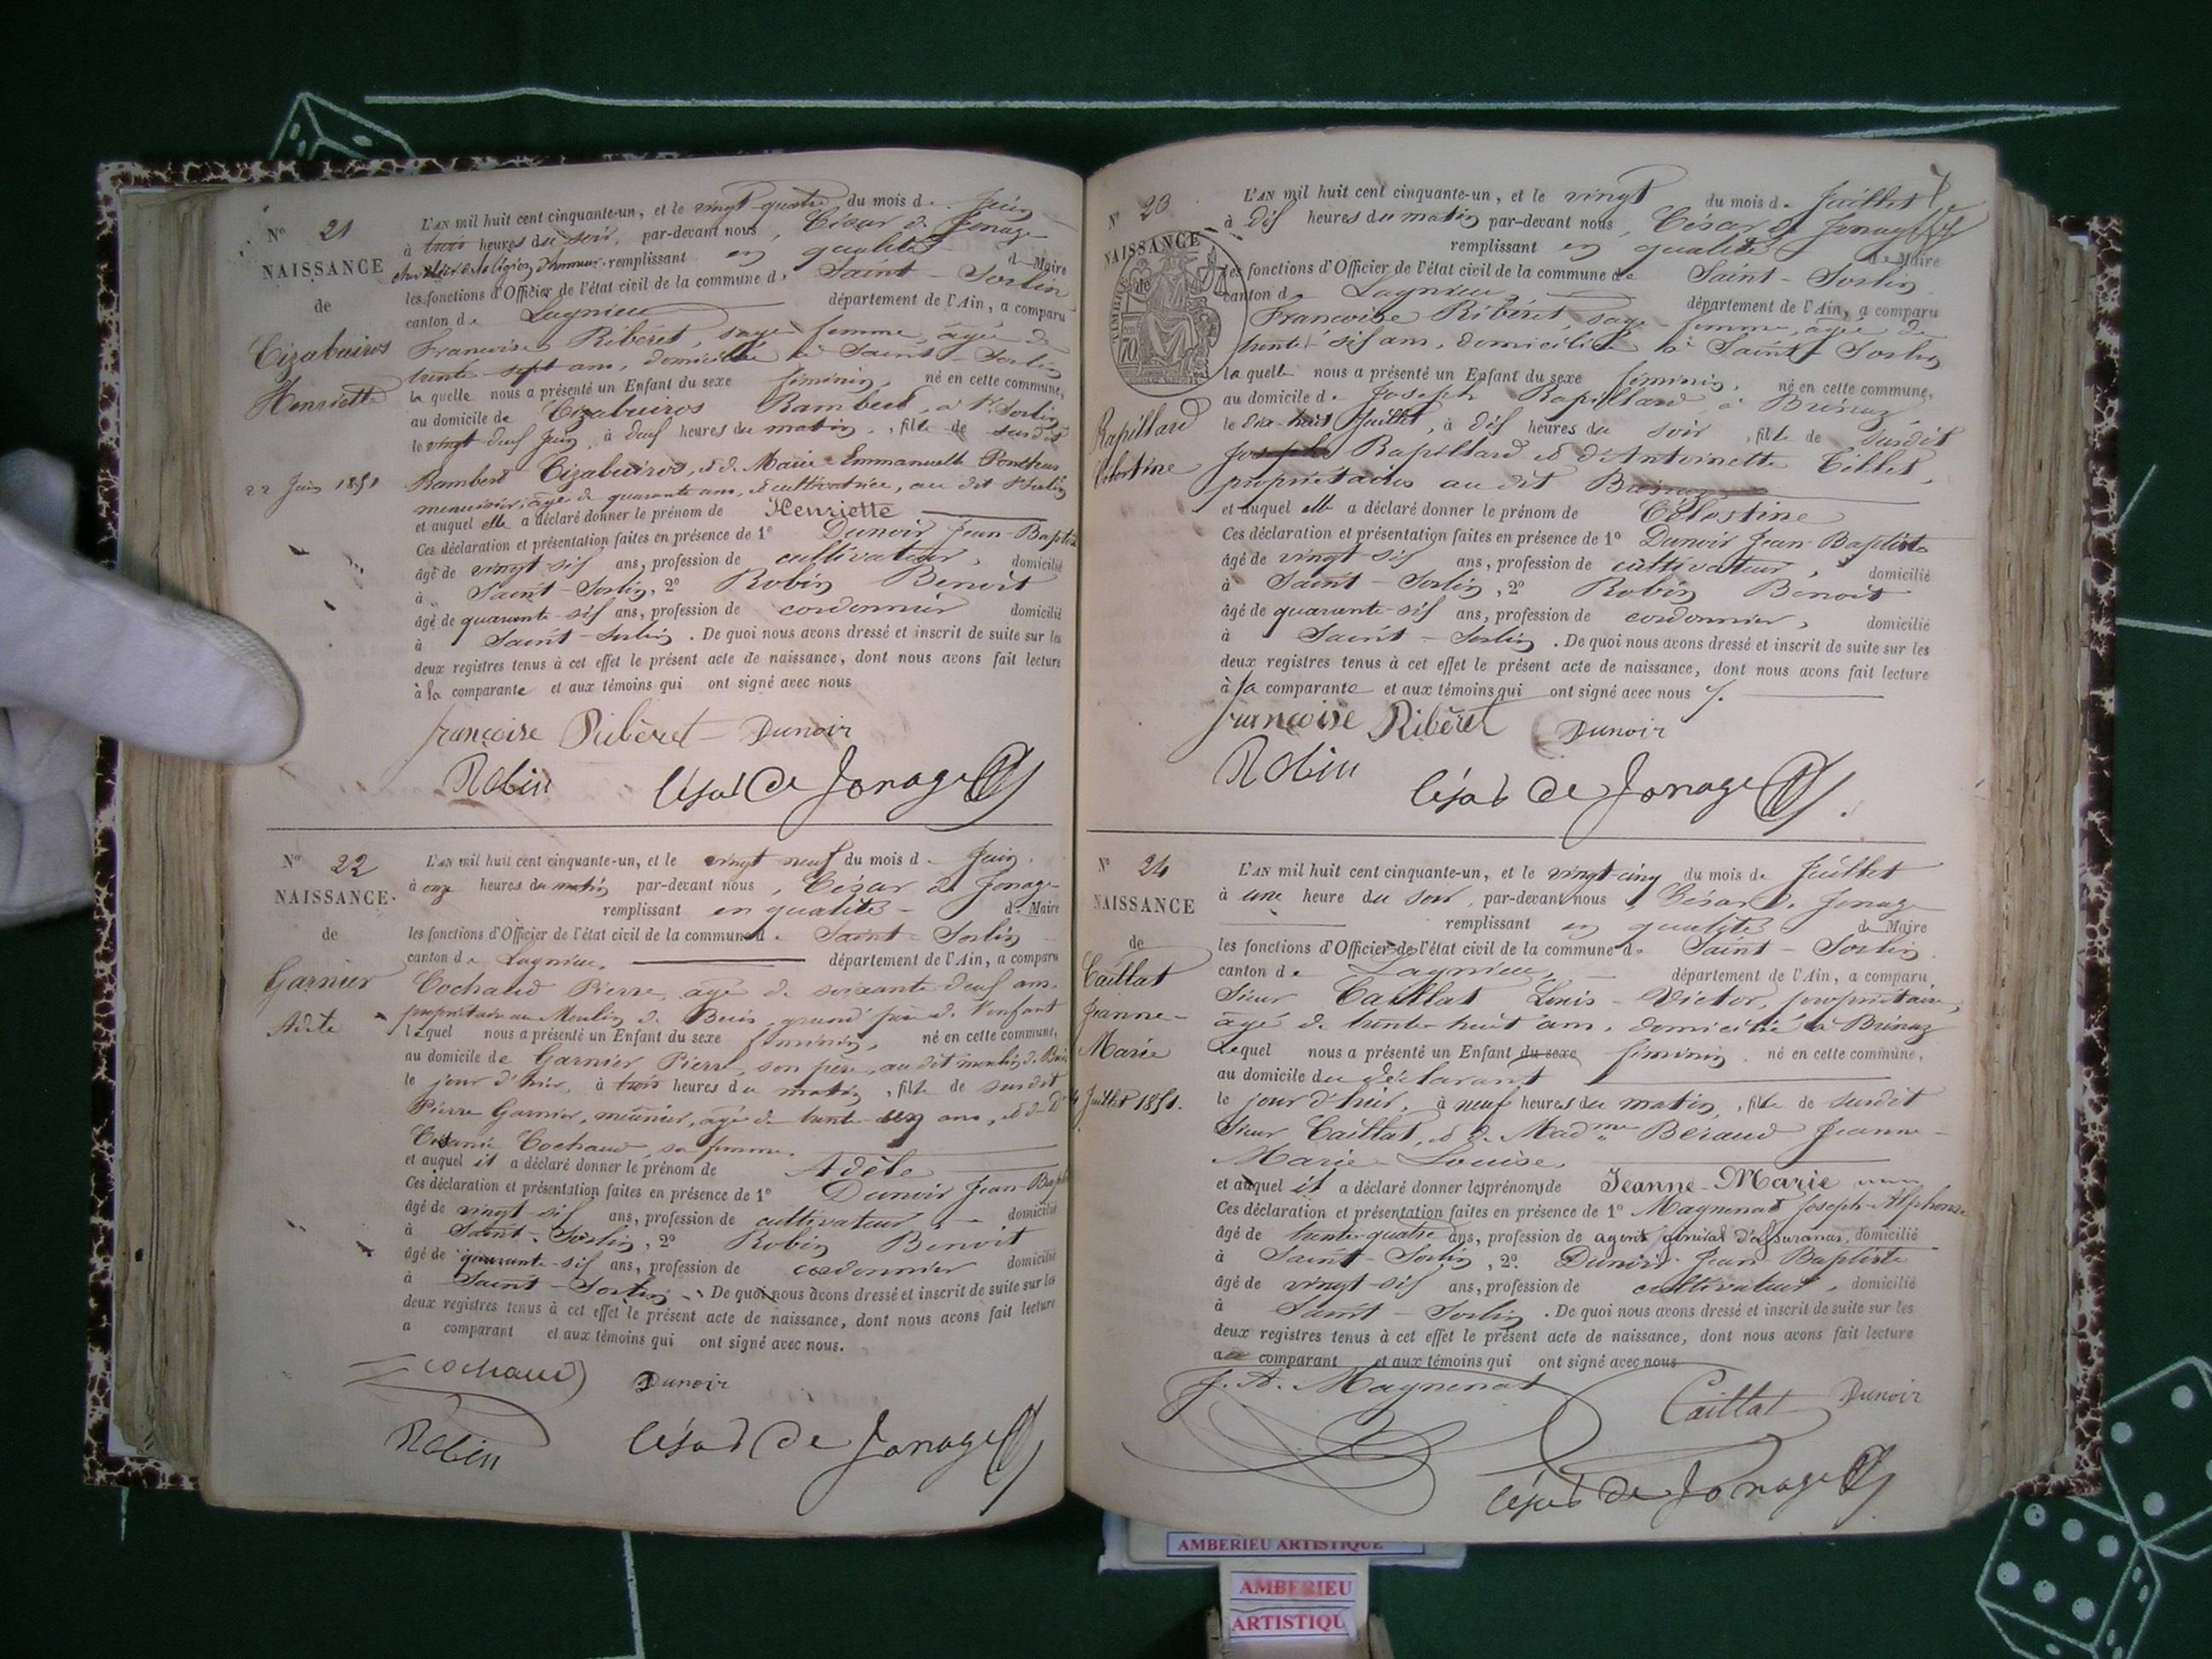 N° 21
NAISSANCE
de
Cizabuiros
Henriette
22 Juin 1851
L'AN mil huit cent cinquante-un, et le vingt-quatre du mois de Juin
à trois heures du soir, par-devant nous, César de Jonage
chevalier de la légion d'honneur remplissant en qualité de Maire
les fonctions d'Officier de l'état civil de la commune de Saint-Sorlin
canton de Lagnieu département de l'Ain, a comparu
Françoise Ribèret, sage-femme, âgée de
trente-sept ans, domiciliée à Saint-Sorlin
laquelle nous a présenté un Enfant du sexe féminin, né en cette commune,
au domicile de Cizabuiros Rambert, à St Sorlin
le vingt-deux Juin, à deux heures du matin, fille de susdit
Rambert Cizabuiros, et de Marie Emmanuelle
menuisier, âgé de quarante ans, et cultivatrice, au dit St Sorlin
et auquel elle a déclaré donner le prénom de Henriette
Ces déclaration et présentation faites en présence de 1° Dunoir Jean-Baptiste
âgé de vingt-six ans, profession de cultivateur, domicilié
à Saint-Sorlin, 2° Robin Benoit
âgé de quarante-six ans, profession de cordonnier domicilié
à Saint-Sorlin. De quoi nous avons dressé et inscrit de suite sur les
deux registres tenus à cet effet le présent acte de naissance, dont nous avons fait lecture
à la comparante et aux témoins qui ont signé avec nous
françoise Ribèret Dunoir
Robin César de Jonage
N° 22
NAISSANCE
de
Garnier
Adèle
L'AN mil huit cent cinquante-un, et le vingt neuf du mois de Juin,
à onze heures du matin par-devant nous, César de Jonage
remplissant en qualité de Maire
les fonctions d'Officier de l'état civil de la commune de Saint-Sorlin
canton de Lagnieu, département de l'Ain, a comparu
Cochaud Pierre, âgé de soixante deux ans,
propriétaire au Moulin de Buis, grand père de l'enfant
lequel nous a présenté un Enfant du sexe féminin, né en cette commune,
au domicile de Garnier Pierre, son père, au dit moulin de Buis
le jour d'hier, à trois heures du matin, fille de susdit
Pierre Garnier, meunier, âgé de trente ans, et de De
Cochaud, sa femme.
et auquel il a déclaré donner le prénom de Adèle
Ces déclaration et présentation faites en présence de 1° Dunoir Jean-Baptiste
âgé de vingt-six ans, profession de cultivateur domicilié
à Saint-Sorlin, 2° Robin Benoit
âgé de quarante-six ans, profession de cordonnier domicilié
à Saint-Sorlin. De quoi nous avons dressé et inscrit de suite sur les
deux registres tenus à cet effet le présent acte de naissance, dont nous avons fait lecture
a comparant et aux témoins qui ont signé avec nous.
Cochaud Dunoir
Robin César de Jonage
N° 23
NAISSANCE
de
Rapillard
Célestine
L'AN mil huit cent cinquante-un, et le vingt du mois de Juillet
à dix heures du matin par-devant nous, César de Jonage
remplissant en qualité de Maire
les fonctions d'Officier de l'état civil de la commune de Saint-Sorlin
canton de Lagnieu, département de l'Ain, a comparu
Françoise Ribéret, sage-femme, âgée de
trente-six ans, domiciliée à Saint-Sorlin
laquelle nous a présenté un Enfant du sexe féminin, né en cette commune,
au domicile de Joseph Rapillard à Brénaz
le dix-huit Juillet, à dix heures du soir, fille de susdit
Joseph Rapillard et d'Antoinette Tillet,
propriétaires au dit Brénaz
et auquel elle a déclaré donner le prénom de Célestine
Ces déclaration et présentation faites en présence de 1° Dunoir Jean-Baptiste
âgé de vingt-six ans, profession de cultivateur, domicilié
à Saint-Sorlin, 2° Robin Benoit
âgé de quarante-six ans, profession de cordonnier, domicilié
à Saint-Sorlin. De quoi nous avons dressé et inscrit de suite sur les
deux registres tenus à cet effet le présent acte de naissance, dont nous avons fait lecture
à la comparante et aux témoins qui ont signé avec nous
françoise Ribèret Dunoir
Robin César de Jonage
N° 24
NAISSANCE
de
Caillat
Jeanne-
Marie
Juillet 1851.
L'AN mil huit cent cinquante-un, et le vingt-cinq du mois de Juillet
à une heure du soir, par-devant nous, César de Jonage
remplissant en qualité de Maire
les fonctions d'Officier de l'état civil de la commune de Saint-Sorlin
canton de Lagnieu, département de l'Ain, a comparu
Sieur Caillat Louis-Victor, propriétaire,
âgé de trente-huit ans, domicilié à Brénaz
Lequel nous a présenté un Enfant du sexe féminin né en cette commune,
au domicile du déclarant
le jour d'hier, à neuf heures du matin, fille de susdit
Sieur Caillat, et de Madme Béraud Jeanne-
Marie-Louise,
et auquel il a déclaré donner les prénoms de Jeanne-Marie
Ces déclaration et présentation faites en présence de 1° Magnenat Joseph-Alphonse
âgé de trente-quatre ans, profession de agent général d'assurances, domicilié
à Saint-Sorlin, 2° Dunoir Jean Baptiste
âgé de vingt-six ans, profession de cultivateur, domicilié
à Saint-Sorlin. De quoi nous avons dressé et inscrit de suite sur les
deux registres tenus à cet effet le présent acte de naissance, dont nous avons fait lecture
au comparant et aux témoins qui ont signé avec nous
J. A. Magnenat Caillat Dunoir
César de Jonage
AMBERIEU ARTISTIQUE
AMBERIEU
ARTISTIQU